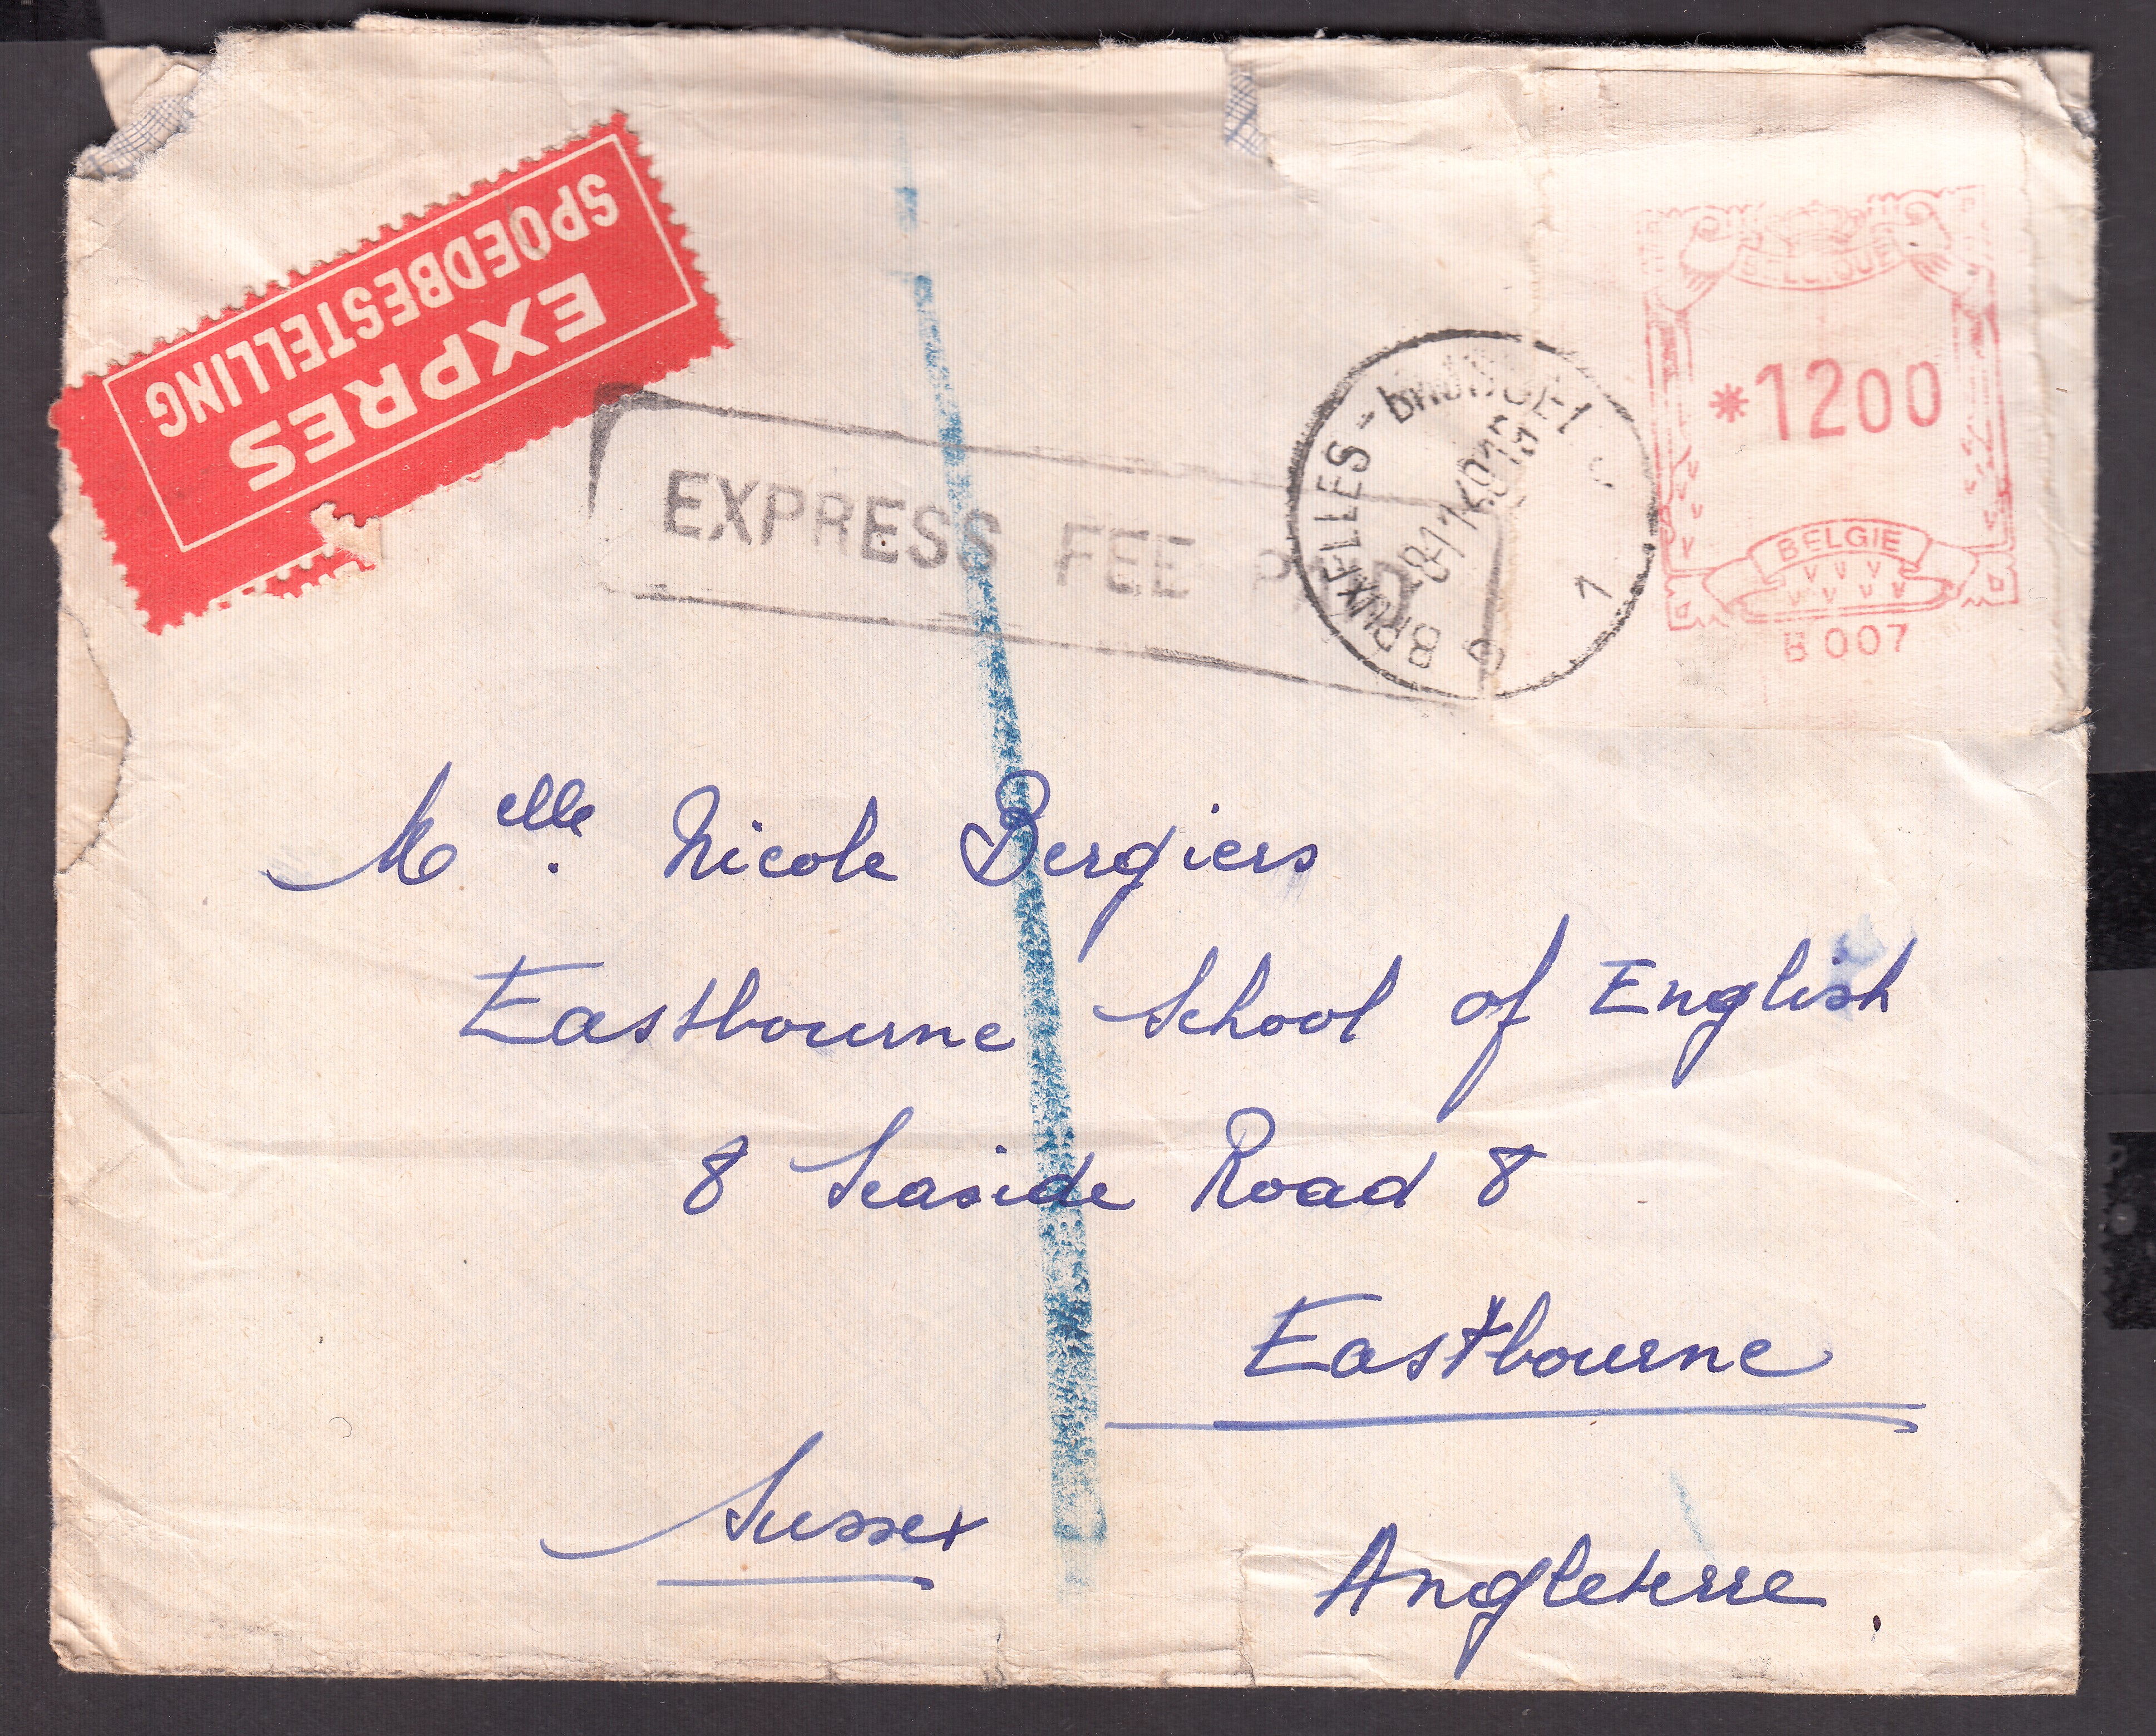 EXPRES
SPOEDBESTELLING
EXPRESS FEE PAID
BRUXELLES - BRUSSEL 1
1
BELGIQUE
*1200
BELGIE
B 007
Melle. Nicole Bergiers
Eastbourne School of English
8 Seaside Road 8
Eastbourne
Sussex
Angleterre.